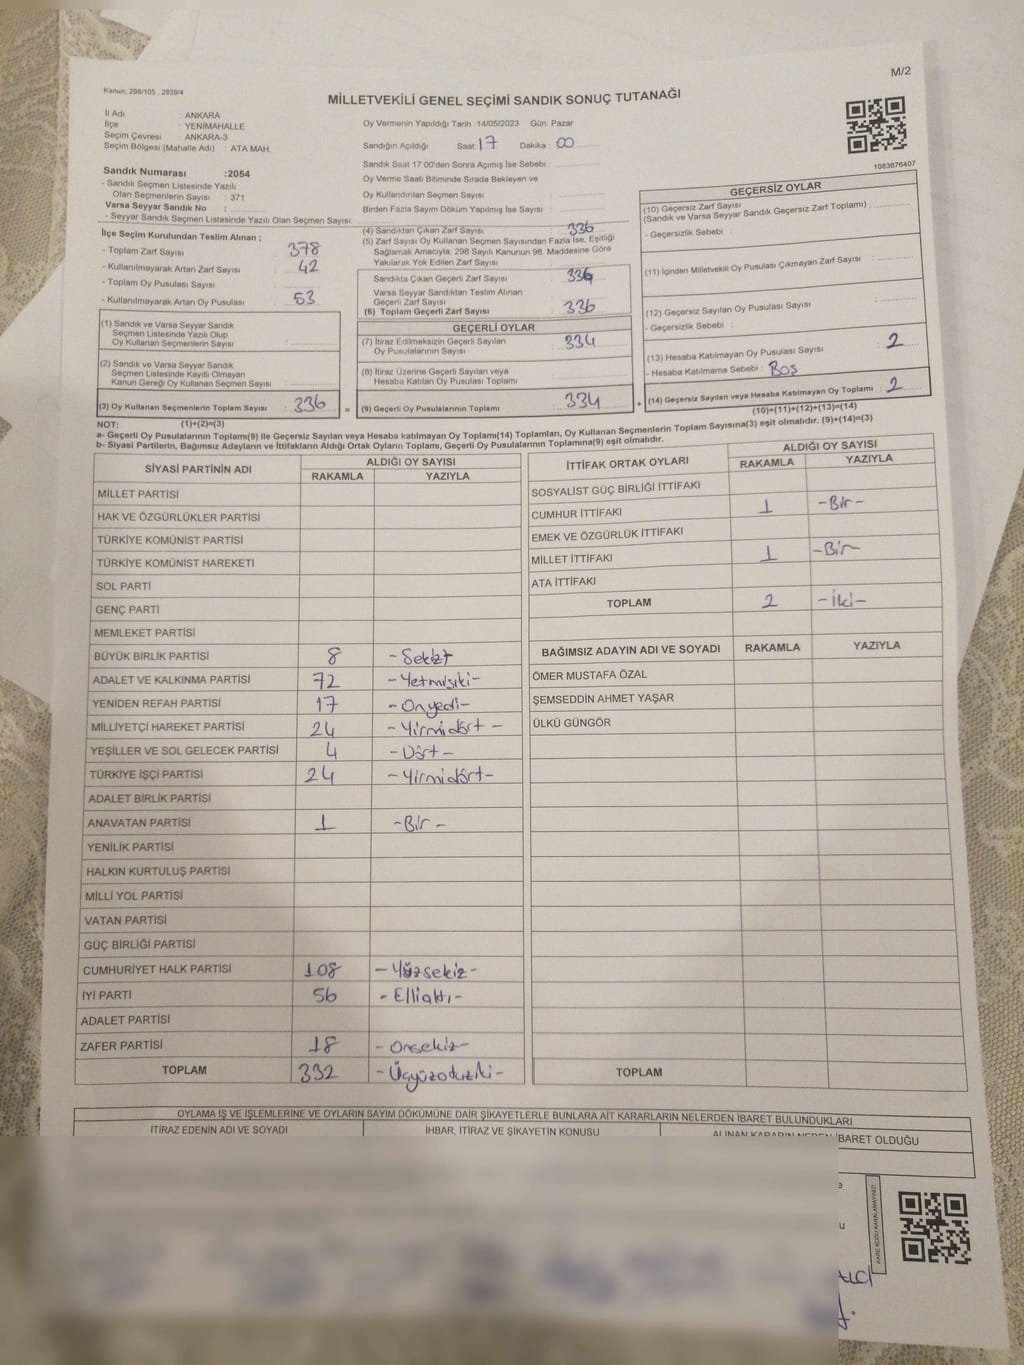 M/2
Kanun: 298/105 , 2839/4
MİLLETVEKİLİ GENEL SEÇİMİ SANDIK SONUÇ TUTANAĞI
İl Adı ANKARA
İlçe YENİMAHALLE
Seçim Çevresi ANKARA-3
Seçim Bölgesi (Mahalle Adı) : ATA MAH.
Oy Vermenin Yapıldığı Tarih :14/05/2023 Gün: Pazar
Sandığın Açıldığı Saat: 17 Dakika: 00
Sandık Saat 17:00'den Sonra Açımış İse Sebebi :
Oy Verme Saati Bitiminde Sırada Bekleyen ve
Oy Kullandırılan Seçmen Sayısı :
Birden Fazla Sayım Döküm Yapılmış İse Sayısı :
1083676407
Sandık Numarası :2054
- Sandık Seçmen Listesinde Yazılı
Olan Seçmenlerin Sayısı : 371
Varsa Seyyar Sandık No :
- Seyyar Sandık Seçmen Listesinde Yazılı Olan Seçmen Sayısı:
İlçe Seçim Kurulundan Teslim Alınan ;
- Toplam Zarf Sayısı 378
- Kullanılmayarak Artan Zarf Sayısı 42
- Toplam Oy Pusulası Sayısı :
- Kullanılmayarak Artan Oy Pusulası 53
(1) Sandık ve Varsa Seyyar Sandık
Seçmen Listesinde Yazılı Olup
Oy Kullanan Seçmenlerin Sayısı :
(2) Sandık ve Varsa Seyyar Sandık
Seçmen Listesinde Kayıtlı Olmayan
Kanun Gereği Oy Kullanan Seçmen Sayısı :
(3) Oy Kullanan Seçmenlerin Toplam Sayısı : 336 =
(4) Sandıktan Çıkan Zarf Sayısı : 336
(5) Zarf Sayısı Oy Kullanan Seçmen Sayısından Fazla İse, Eşitliği
Sağlamak Amacıyla; 298 Sayılı Kanunun 98. Maddesine Göre
Yakılarak Yok Edilen Zarf Sayısı :
Sandıkta Çıkan Geçerli Zarf Sayısı : 336
Varsa Seyyar Sandıktan Teslim Alınan
Geçerli Zarf Sayısı :
(6) Toplam Geçerli Zarf Sayısı : 336
GEÇERLİ OYLAR
(7) İtiraz Edilmeksizin Geçerli Sayılan
Oy Pusulalarının Sayısı : 334
(8) İtiraz Üzerine Geçerli Sayılan veya
Hesaba Katılan Oy Pusulası Toplamı :
(9) Geçerli Oy Pusulalarının Toplamı : 334 +
GEÇERSİZ OYLAR
(10) Geçersiz Zarf Sayısı
(Sandık ve Varsa Seyyar Sandık Geçersiz Zarf Toplamı) :
- Geçersizlik Sebebi :
(11) İçinden Milletvekili Oy Pusulası Çıkmayan Zarf Sayısı :
(12) Geçersiz Sayılan Oy Pusulası Sayısı :
- Geçersizlik Sebebi :
(13) Hesaba Katılmayan Oy Pusulası Sayısı : 2
- Hesaba Katılmama Sebebi : Boş
(14) Geçersiz Sayılan veya Hesaba Katılmayan Oy Toplamı : 2
(10)+(11)+(12)+(13)=(14)
NOT: (1)+(2)=(3)
a- Geçerli Oy Pusulalarının Toplamı(9) ile Geçersiz Sayılan veya Hesaba katılmayan Oy Toplamı(14) Toplamları, Oy Kullanan Seçmenlerin Toplam Sayısına(3) eşit olmalıdır. (9)+(14)=(3)
b- Siyasi Partilerin, Bağımsız Adayların ve İttifakların Aldığı Oyların Toplamı, Geçerli Oy Pusulalarının Toplamına(9) eşit olmalıdır.
SİYASİ PARTİNİN ADI ALDIĞI OY SAYISI
RAKAMLA YAZIYLA
MİLLET PARTİSİ
HAK VE ÖZGÜRLÜKLER PARTİSİ
TÜRKİYE KOMÜNİST PARTİSİ
TÜRKİYE KOMÜNİST HAREKETİ
SOL PARTİ
GENÇ PARTİ
MEMLEKET PARTİSİ
BÜYÜK BİRLİK PARTİSİ 8 -Sekiz-
ADALET VE KALKINMA PARTİSİ 72 -Yetmişiki-
YENİDEN REFAH PARTİSİ 17 -Onyedi-
MİLLİYETÇİ HAREKET PARTİSİ 24 -Yirmidört-
YEŞİLLER VE SOL GELECEK PARTİSİ 4 -Dört-
TÜRKİYE İŞÇİ PARTİSİ 24 -Yirmidört-
ADALET BİRLİK PARTİSİ
ANAVATAN PARTİSİ 1 -Bir-
YENİLİK PARTİSİ
HALKIN KURTULUŞ PARTİSİ
MİLLİ YOL PARTİSİ
VATAN PARTİSİ
GÜÇ BİRLİĞİ PARTİSİ
CUMHURİYET HALK PARTİSİ 108 -Yüzsekiz-
İYİ PARTİ 56 -Ellialtı-
ADALET PARTİSİ
ZAFER PARTİSİ 18 -Onsekiz-
TOPLAM 332 -Üçyüzotuziki-
İTTİFAK ORTAK OYLARI ALDIĞI OY SAYISI
RAKAMLA YAZIYLA
SOSYALİST GÜÇ BİRLİĞİ İTTİFAKI
CUMHUR İTTİFAKI 1 -Bir-
EMEK VE ÖZGÜRLÜK İTTİFAKI
MİLLET İTTİFAKI 1 -Bir-
ATA İTTİFAKI
TOPLAM 2 -İki-
BAĞIMSIZ ADAYIN ADI VE SOYADI RAKAMLA YAZIYLA
ÖMER MUSTAFA ÖZAL
ŞEMSEDDİN AHMET YAŞAR
ÜLKÜ GÜNGÖR
TOPLAM
OYLAMA İŞ VE İŞLEMLERİNE VE OYLARIN SAYIM DÖKÜMÜNE DAİR ŞİKAYETLERLE BUNLARA AİT KARARLARIN NELERDEN İBARET BULUNDUKLARI
İTİRAZ EDENİN ADI VE SOYADI İHBAR, İTİRAZ VE ŞİKAYETİN KONUSU ALINAN KARARIN NEDEN İBARET OLDUĞU
KARE KODU KARALAMAYINIZ!